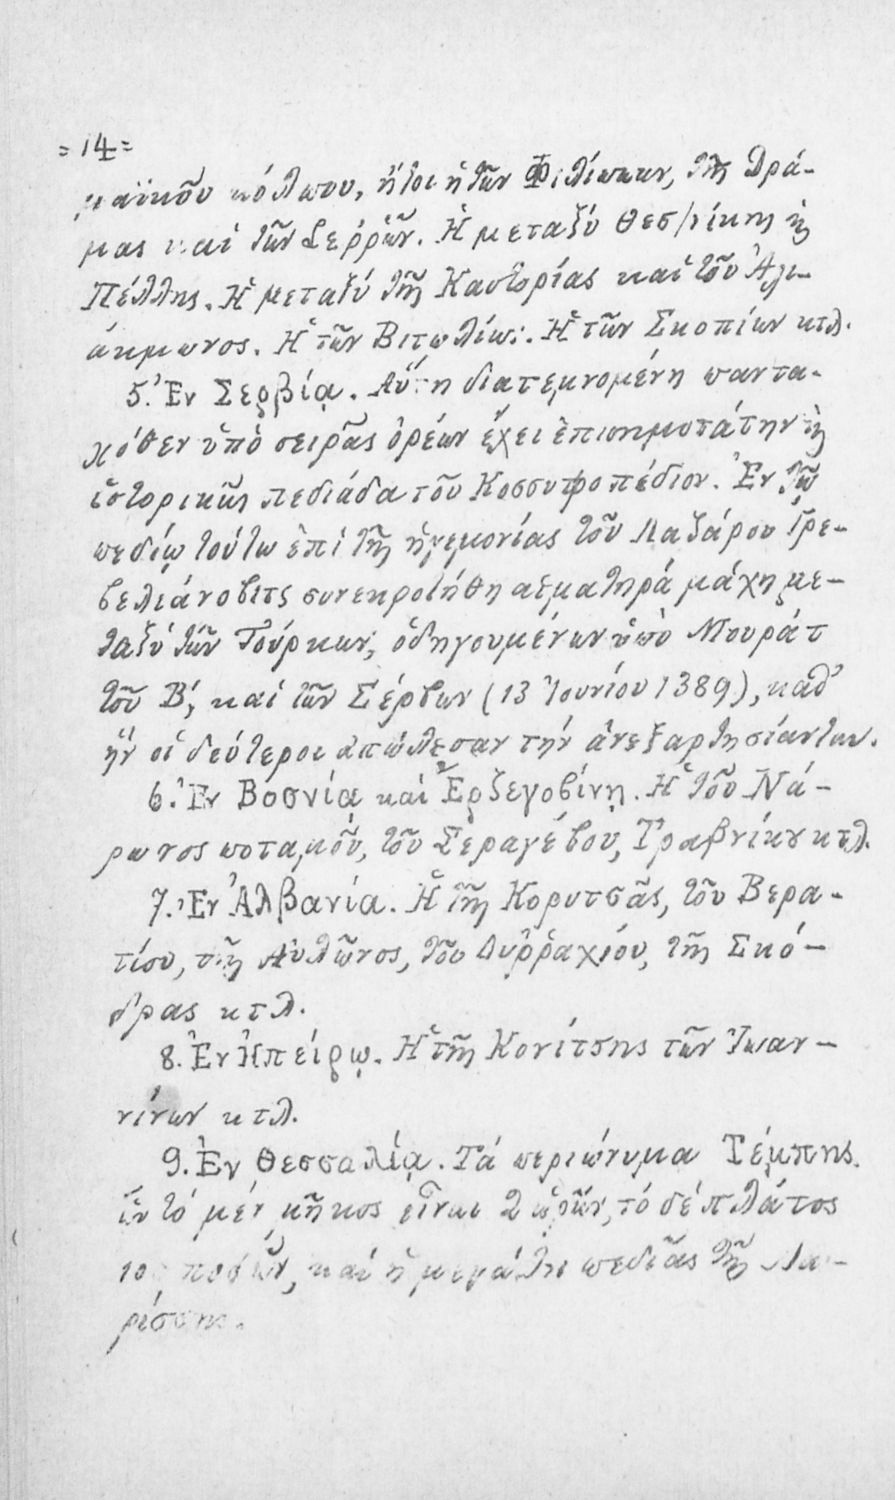 =14=
μαϊκοῦ κόλπου, ἤτοι ἡ τῶν Φιλίππων, τῆς Δρά-
μας καὶ τῶν Σεῤῥῶν. Ἡ μεταξύ Θεσ/νίκης ϗ
Πέλλης. Ἡ μεταξύ τῆς Καστορίας καὶ τοῦ Ἁλι-
άκμωνος. Ἡ τῶν Βιτωλίων. Ἡ τῶν Σκοπίων κτλ.
5. Ἐν Σερβίᾳ. Αὕτη διατεμνομένη παντα-
χόθεν ὑπὸ σειρᾶς ὀρέων ἔχει ἐπισημοτάτην ϗ
ἱστορικὴν πεδιάδα τοῦ Κοσσυφοπέδιον. Ἐν τῷ
πεδίῳ τούτω ἐπὶ τῆς ἡγεμονίας τοῦ Λαζάρου Γρε-
βελιάνοβιτς συνεκροτήθη αἱματηρά μάχη με-
ταξύ τῶν Τούρκων, ὁδηγουμένων ὑπὸ Μουράτ
τοῦ Β', καὶ τῶν Σέρβων (13 Ἰουνίου 1389), καθ'
ἥν οἱ δεύτεροι ἀπώλεσαν τήν ἀνεξαρτησίαν των.
6. Ἐν Βοσνίᾳ καὶ Ἐρζεγοβίνῃ. Ἡ τοῦ Νά-
ρωνος ποταμοῦ, τοῦ Σεραγέβου, Τραβνίκου κτλ.
7. Ἐν Ἀλβανία. Ἡ τῆς Κορυτσᾶς, τοῦ Βερα-
τίου, τῆς Αὐλῶνος, τοῦ Δυῤῥαχίου, τῆς Σκό-
δρας κτλ.
8. Ἐν Ἠπείρῳ. Ἡ τῆς Κονίτσης τῶν Ἰωαν-
νίνων κτλ.
9. Ἐν Θεσσαλίᾳ. Τά περιώνυμα Τέμπης.
ὧν τό μέν μῆκος εἶναι 2 ὡρῶν, τό δέ πλάτος
ποδῶν, καί ἡ μεγάλη πεδιᾶς τῆς Λα-
ρίσσης.